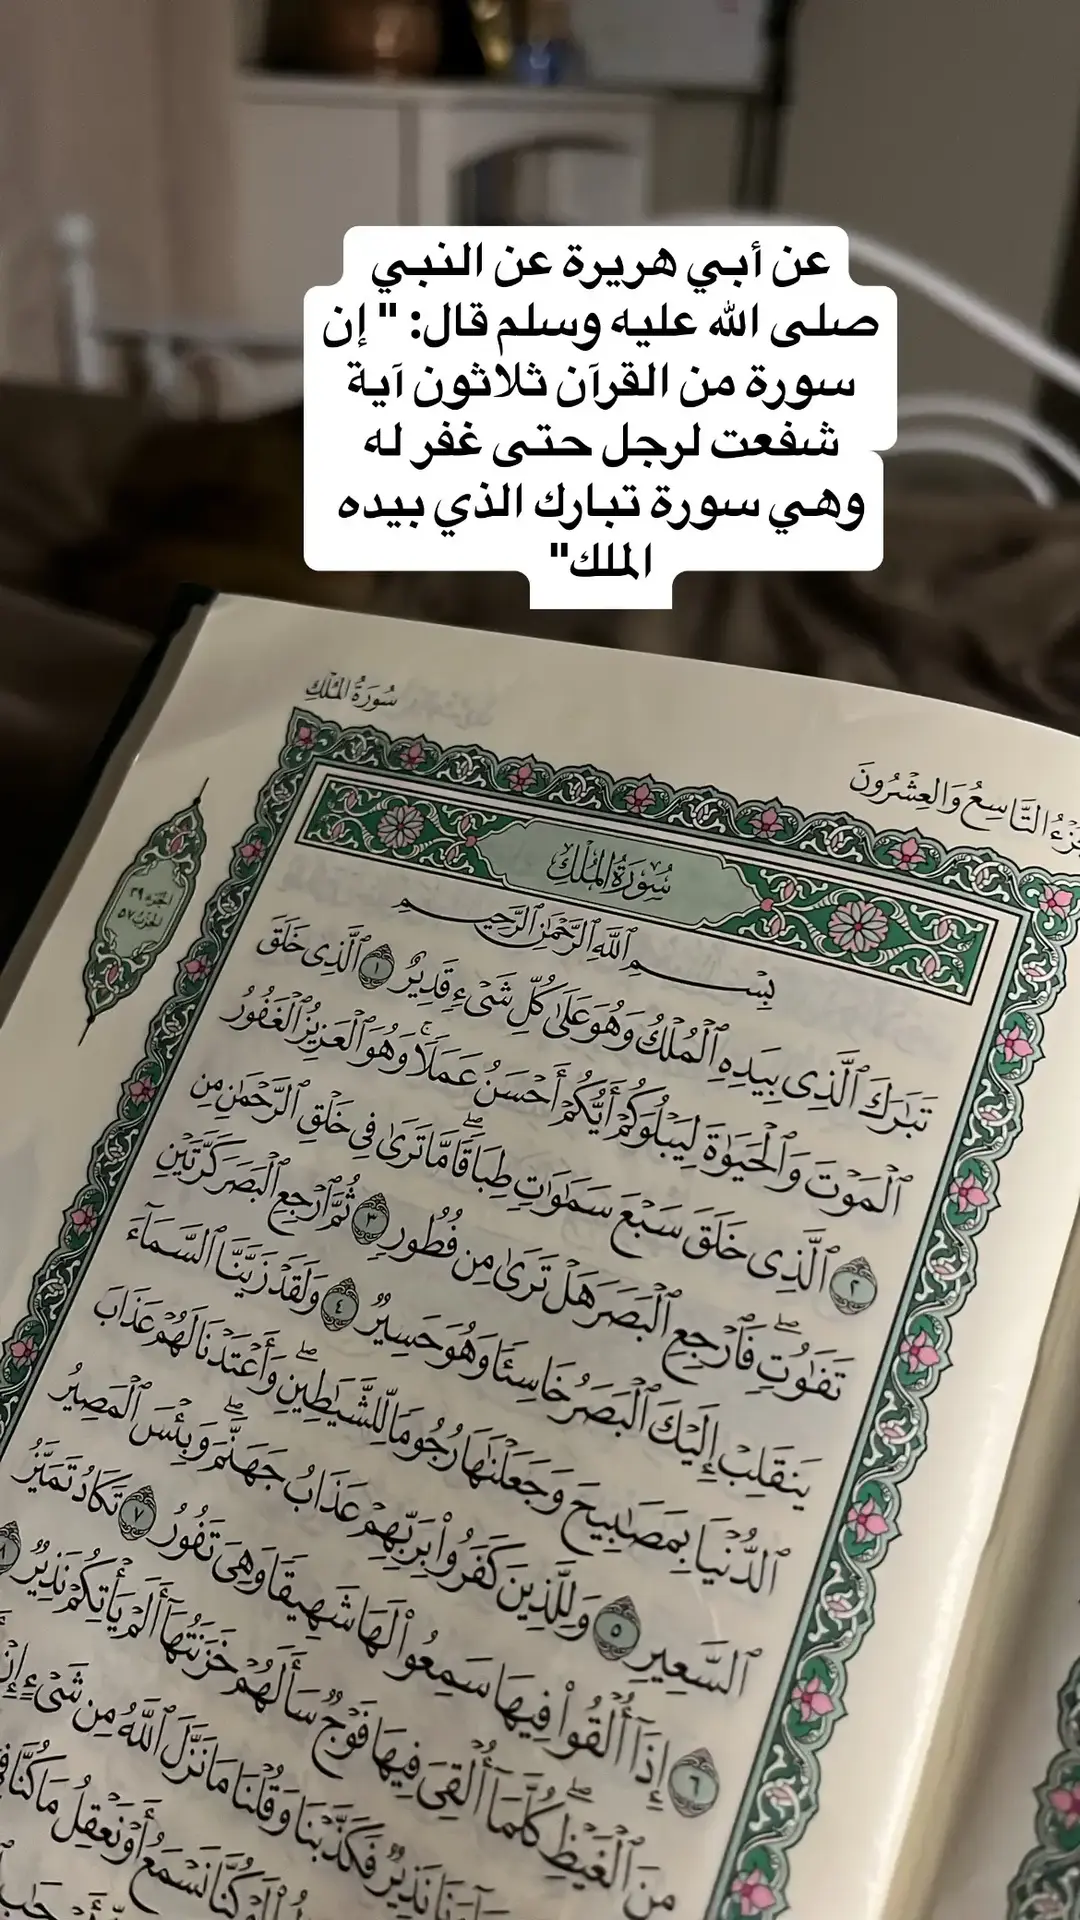 عن أبي هريرة عن النبي
صلى الله عليه وسلم قال: " إن
سورة من القرآن ثلاثون آية
شفعت لرجل حتى غفر له
وهي سورة تبارك الذي بيده
الملك"
سُورَةُ المُلْكِ
الجُزْءُ التَّاسِعُ وَالعِشْرُونَ
الجزء ٢٩
الحزب ٥٧
سُورَةُ المُلْكِ
بِسْمِ ٱللَّهِ ٱلرَّحْمَٰنِ ٱلرَّحِيمِ
تَبَٰرَكَ ٱلَّذِى بِيَدِهِ ٱلْمُلْكُ وَهُوَ عَلَىٰ كُلِّ شَىْءٍ قَدِيرٌ ١ ٱلَّذِى خَلَقَ
ٱلْمَوْتَ وَٱلْحَيَوٰةَ لِيَبْلُوَكُمْ أَيُّكُمْ أَحْسَنُ عَمَلًا ۚ وَهُوَ ٱلْعَزِيزُ ٱلْغَفُورُ
٢ ٱلَّذِى خَلَقَ سَبْعَ سَمَٰوَٰتٍ طِبَاقًا ۖ مَّا تَرَىٰ فِى خَلْقِ ٱلرَّحْمَٰنِ مِن
تَفَٰوُتٍ ۖ فَٱرْجِعِ ٱلْبَصَرَ هَلْ تَرَىٰ مِن فُطُورٍ ٣ ثُمَّ ٱرْجِعِ ٱلْبَصَرَ كَرَّتَيْنِ
يَنقَلِبْ إِلَيْكَ ٱلْبَصَرُ خَاسِئًا وَهُوَ حَسِيرٌ ٤ وَلَقَدْ زَيَّنَّا ٱلسَّمَآءَ
ٱلدُّنْيَا بِمَصَٰبِيحَ وَجَعَلْنَٰهَا رُجُومًا لِّلشَّيَٰطِينِ ۖ وَأَعْتَدْنَا لَهُمْ عَذَابَ
ٱلسَّعِيرِ ٥ وَلِلَّذِينَ كَفَرُوا۟ بِرَبِّهِمْ عَذَابُ جَهَنَّمَ ۖ وَبِئْسَ ٱلْمَصِيرُ
٦ إِذَآ أُلْقُوا۟ فِيهَا سَمِعُوا۟ لَهَا شَهِيقًا وَهِىَ تَفُورُ ٧ تَكَادُ تَمَيَّزُ
مِنَ ٱلْغَيْظِ ۖ كُلَّمَآ أُلْقِىَ فِيهَا فَوْجٌ سَأَلَهُمْ خَزَنَتُهَآ أَلَمْ يَأْتِكُمْ نَذِيرٌ ٨
جَآءَنَا نَذِيرٌ فَكَذَّبْنَا وَقُلْنَا مَا نَزَّلَ ٱللَّهُ مِن شَىْءٍ إِنْ
كُنَّا نَسْمَعُ أَوْ نَعْقِلُ مَا كُنَّا